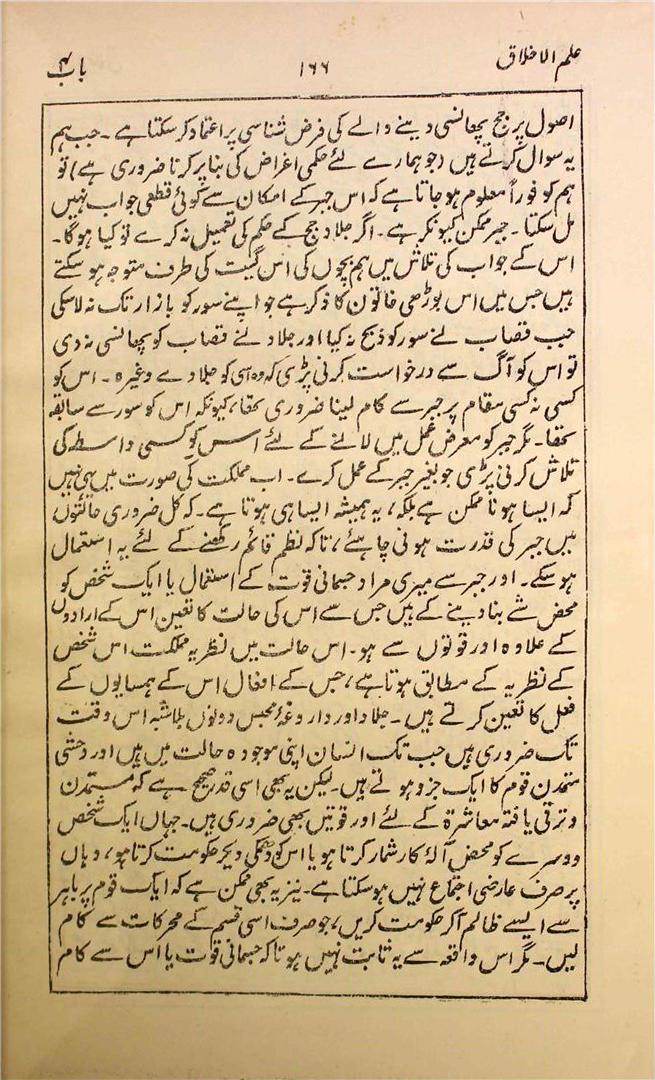 علم الاخلاق
۱۶۶
باب ۴
اصول پر جج پھانسی دینے والے کی فرض شناسی پر اعتماد کر سکتا ہے ۔ جب ہم
یہ سوال کرتے ہیں (جو ہمارے لئے حکمی اغراض کی بنا پر کرنا ضروری ہے) تو
ہم کو فوراً معلوم ہو جاتا ہے کہ اس جبر کے امکان سے کوئی قطعی جواب نہیں
مل سکتا ۔ جبر ممکن کیونکر ہے ۔ اگر جلاد جج کے حکم کی تعمیل نہ کرے تو کیا ہوگا ۔
اس کے جواب کی تلاش میں ہم بچوں کی اس گیت کی طرف متوجہ ہو سکتے
ہیں جس میں اس بوڑھی خاتون کا ذکر ہے جو اپنے سور کو بازار تک نہ لا سکی
جب قصاب نے سور کو ذبح نہ کیا اور جلاد نے قصاب کو پھانسی نہ دی
تو اس کو آگ سے درخواست کرنی پڑی کہ وہ اسی کو جلا دے وغیرہ ۔ اس کو
کسی نہ کسی مقام پر جبر سے کام لینا ضروری تھا، کیونکہ اس کو سور سے سابقہ
تھا ۔ مگر جبر کو معرض عمل میں لانے کے لئے اس کو کسی واسطے کی
تلاش کرنی پڑی جو بغیر جبر کے عمل کرے ۔ اب مملکت کی صورت میں یہی نہیں
کہ ایسا ہونا ممکن ہے بلکہ، یہ ہمیشہ ایسا ہی ہوتا ہے ۔ کہ کل ضروری حالتوں
میں جبر کی قدرت ہونی چاہئے، تاکہ نظم قائم رکھنے کے لئے یہ استعمال
ہو سکے ۔ اور جبر سے میری مراد جسمانی قوت کے استعمال یا ایک شخص کو
محض شے بنا دینے کے ہیں جس سے اس کی حالت کا تعین اس کے ارادوں
کے علاوہ اور قوتوں سے ہو ۔ اس حالت میں نظریہ مملکت اس شخص
کے نظریہ کے مطابق ہوتا ہے، جس کے افعال اس کے ہمسایوں کے
فعل کا تعین کرتے ہیں ۔ جلاد اور داروغۂ محبس دونوں بلاشبہ اس وقت
تک ضروری ہیں جب تک انسان اپنی موجودہ حالت میں ہیں اور وحشی
متمدن قوم کا ایک جزو ہوتے ہیں ۔ لیکن یہ بھی اسی قدر صحیح ہے کہ متمدن
و ترقی یافتہ معاشرہ کے لئے اور قوتیں بھی ضروری ہیں ۔ جہاں ایک شخص
دوسرے کو محض آلۂ کار شمار کرتا ہو یا اس کو دھمکی دیکر حکومت کرتا ہو، وہاں
پر صرف عارضی اجتماع نہیں ہو سکتا ہے ۔ نیز یہ بھی ممکن ہے کہ ایک قوم پر باہر
سے ایسے ظالم آکر حکومت کریں، جو صرف اسی قسم کے محرکات سے کام
لیں ۔ مگر اس واقعہ سے یہ ثابت نہیں ہوتا کہ جسمانی قوت یا اس سے کام